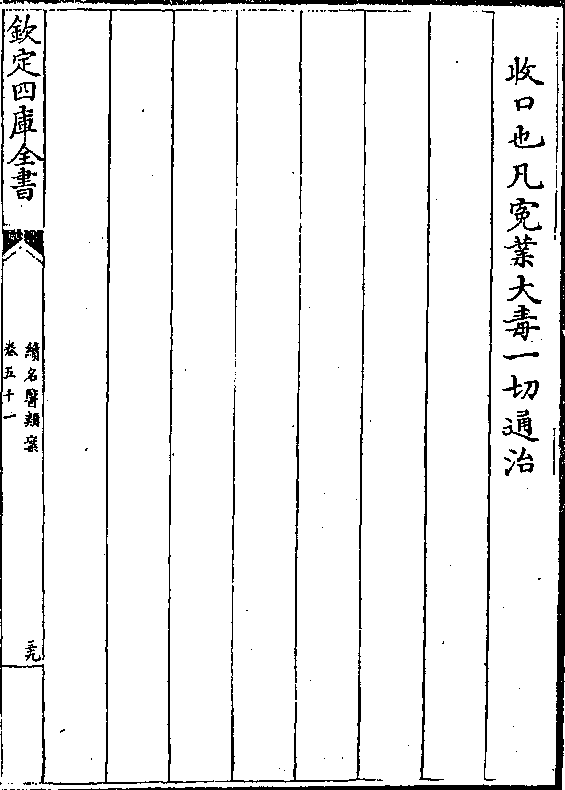 收口也凡寃業大毒一切通治
欽定四庫全書
續名醫類案
卷五十一